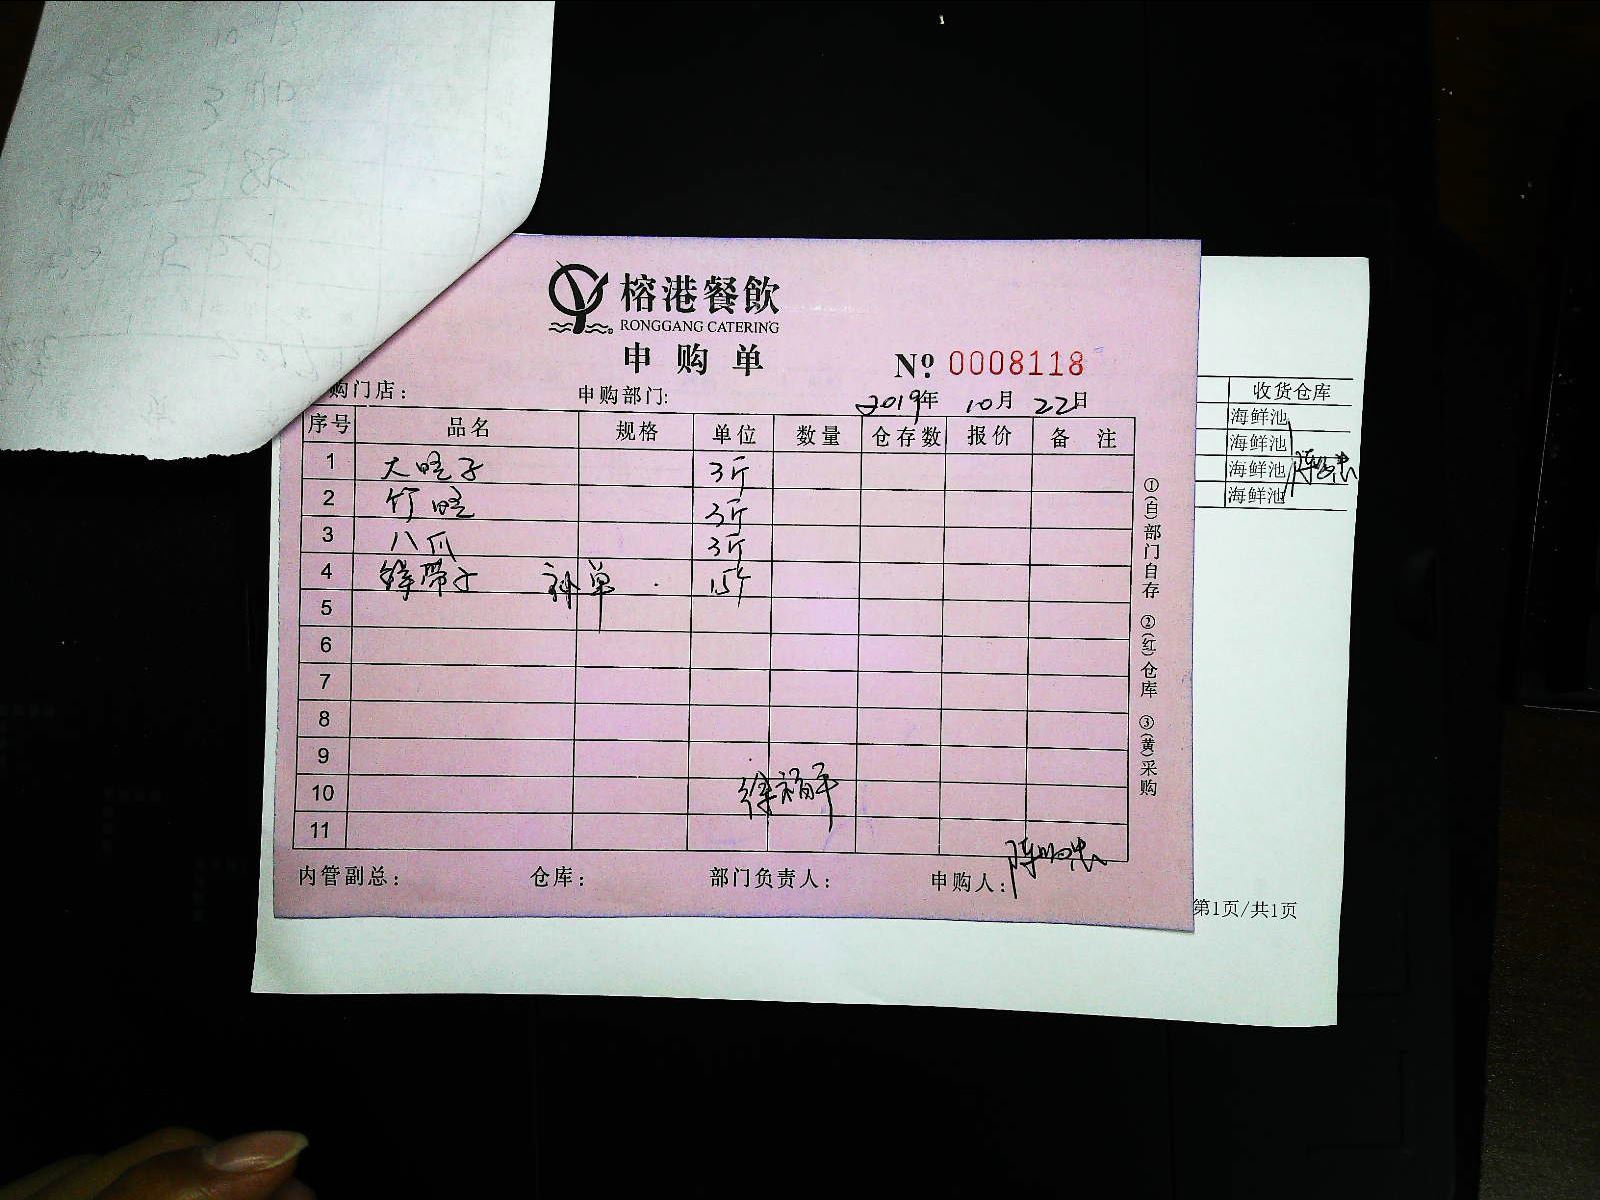 榕港餐飲
RONGGANG CATERING
申购单
№ 0008118
购门店: 申购部门: 2019年 10月 22日
序号 品名 规格 单位 数量 仓存数 报价 备注
1 大蛏子 3斤
2 竹蛏 3斤
3 八爪 3斤
4 带子 补单 15个
5
6
7
8
9
10 徐福平
11
内管副总: 仓库: 部门负责人: 申购人:
①(白)部门自存 ②(红)仓库 ③(黄)采购
收货仓库
海鲜池
海鲜池
海鲜池
海鲜池
第1页/共1页